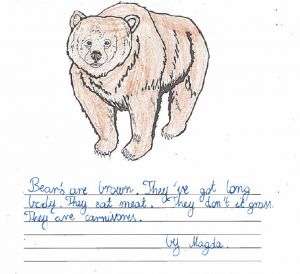 Bears are brown. They've got long
body. They eat meat. They don't it grass.
They are carnivores.
by Magda.